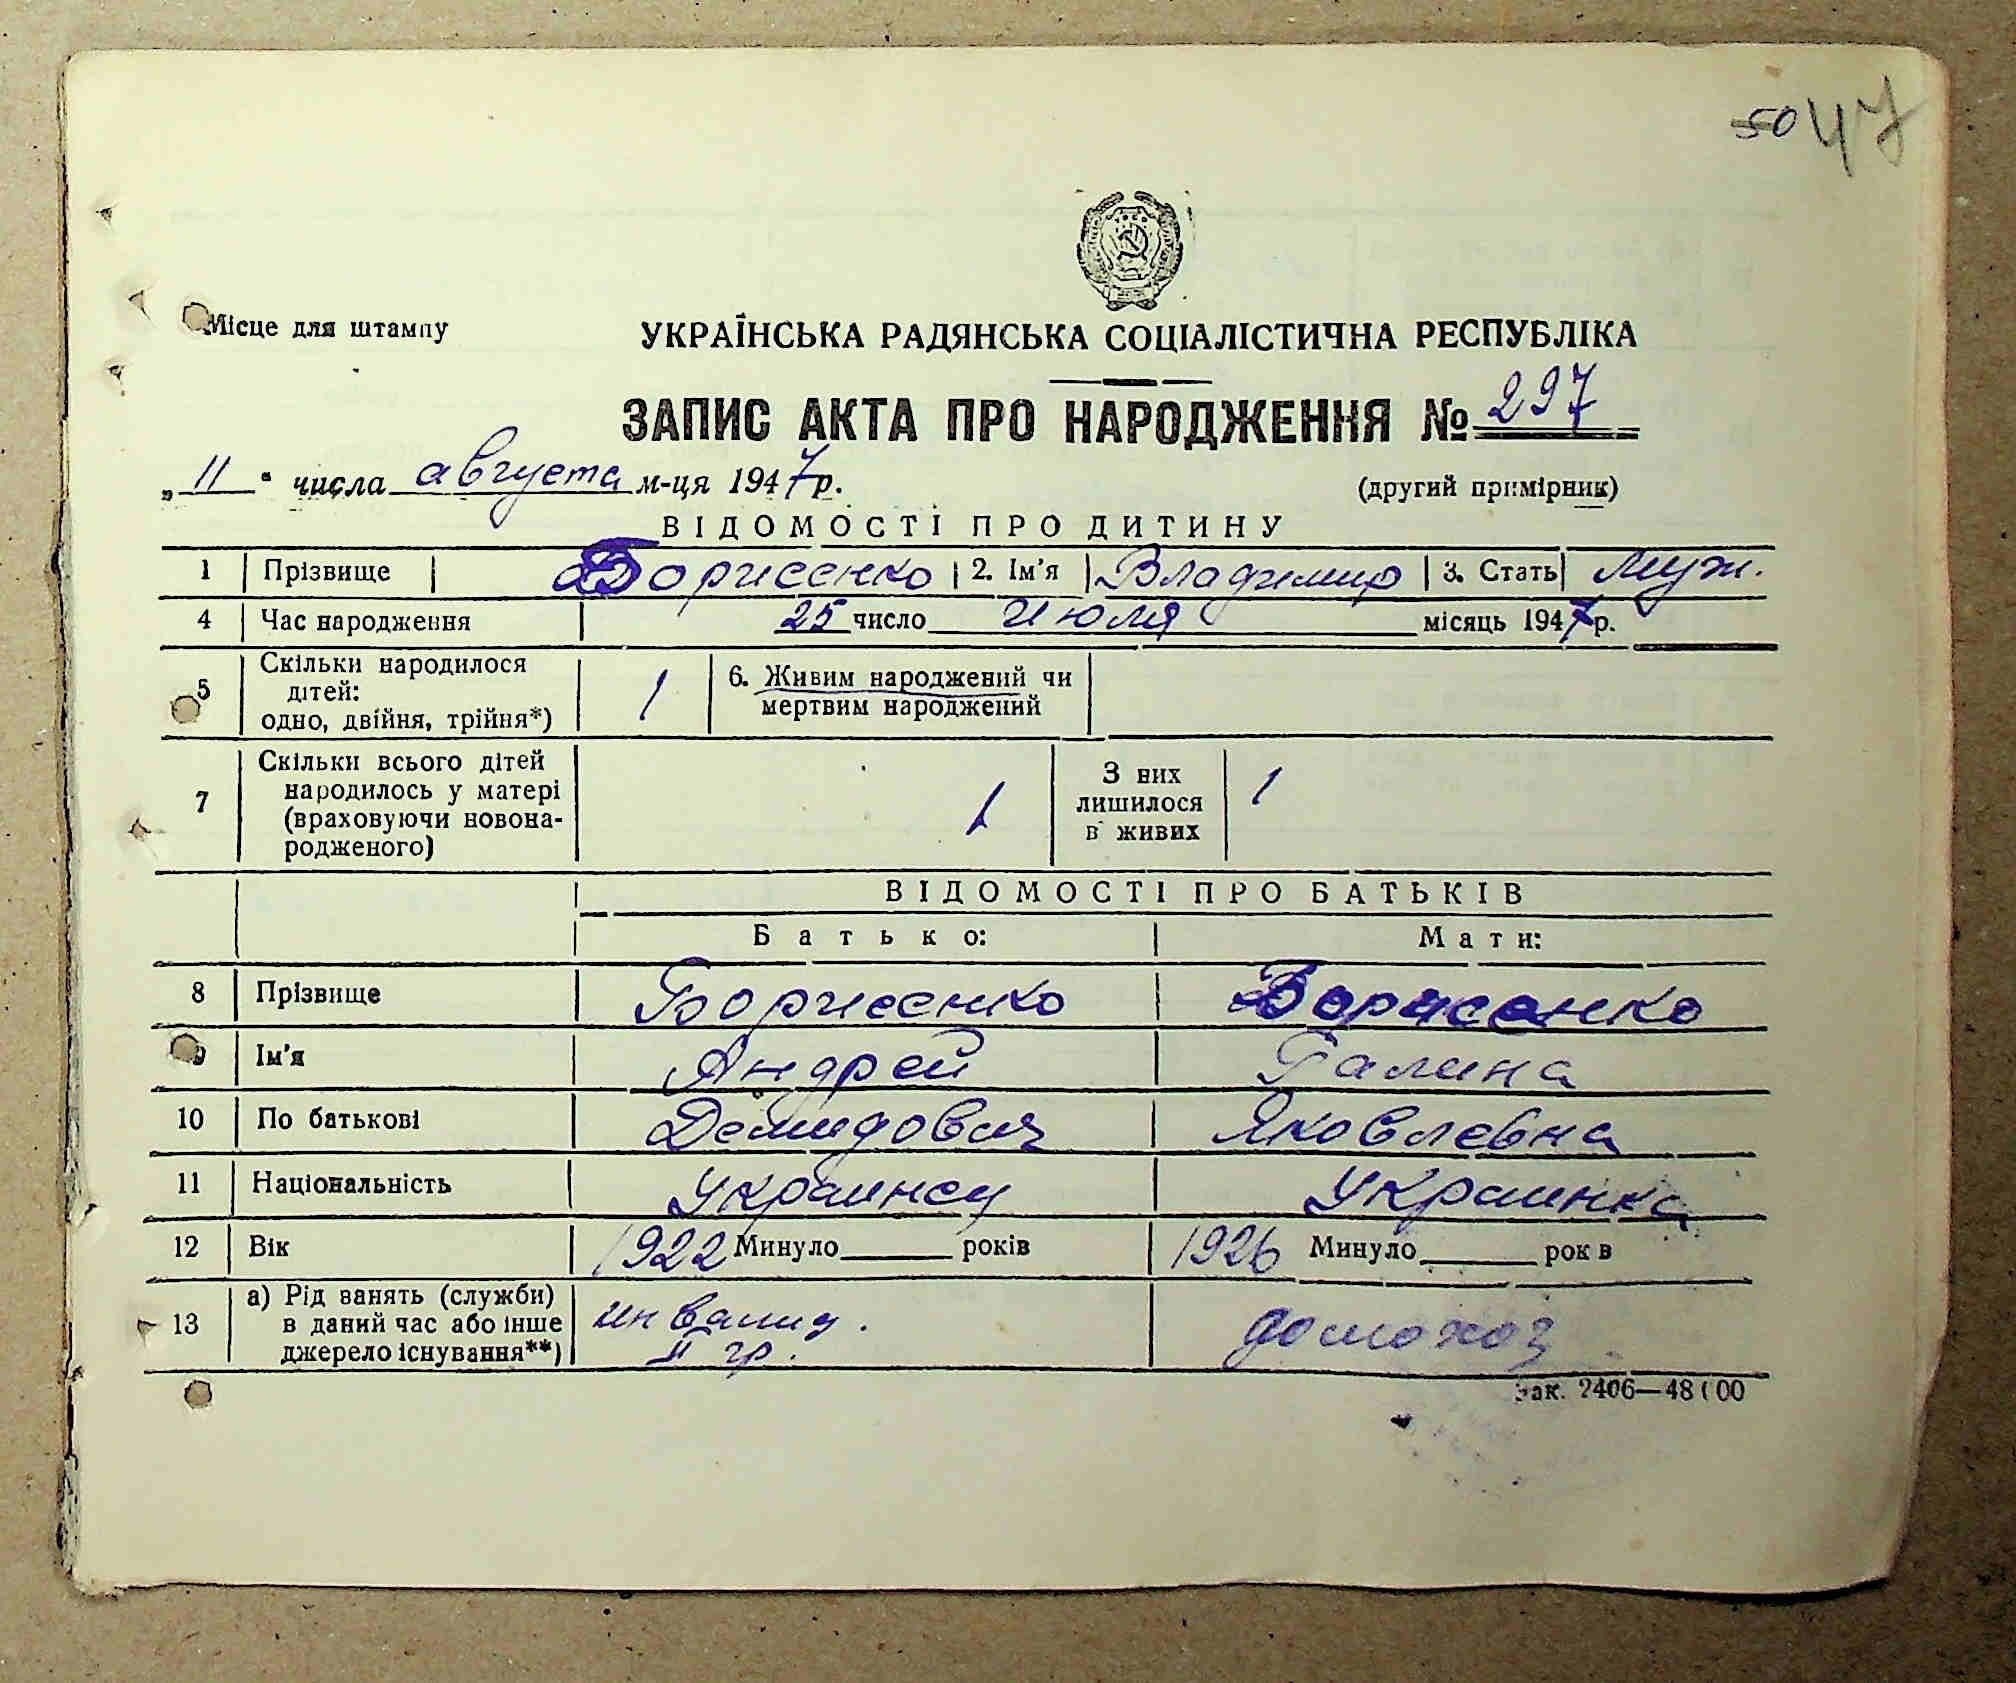 50 47
Місце для штампу
УКРАЇНСЬКА РАДЯНСЬКА СОЦІАЛІСТИЧНА РЕСПУБЛІКА
ЗАПИС АКТА ПРО НАРОДЖЕННЯ № 297
„11“ числа августа м-ця 1947р.
(другий примірник)
ВІДОМОСТІ ПРО ДИТИНУ
1 Прізвище Борисенко 2. Ім'я Владимир 3. Стать муж.
4 Час народження 25 число июля місяць 1947р.
5 Скільки народилося дітей: одно, двійня, трійня*) 1 6. Живим народжений чи мертвим народжений
7 Скільки всього дітей народилось у матері (враховуючи новонародженого) 1 З них лишилося в живих 1
ВІДОМОСТІ ПРО БАТЬКІВ
Батько: Мати:
8 Прізвище Борисенко Борисенко
9 Ім'я Андрей Галина
10 По батькові Демидович Яковлевна
11 Національність украинец украинка
12 Вік 1922 Минуло років 1926 Минуло рок в
13 а) Рід занять (служби) в даний час або інше джерело існування**) инвалид II гр. домохоз
Зак. 2406—48000